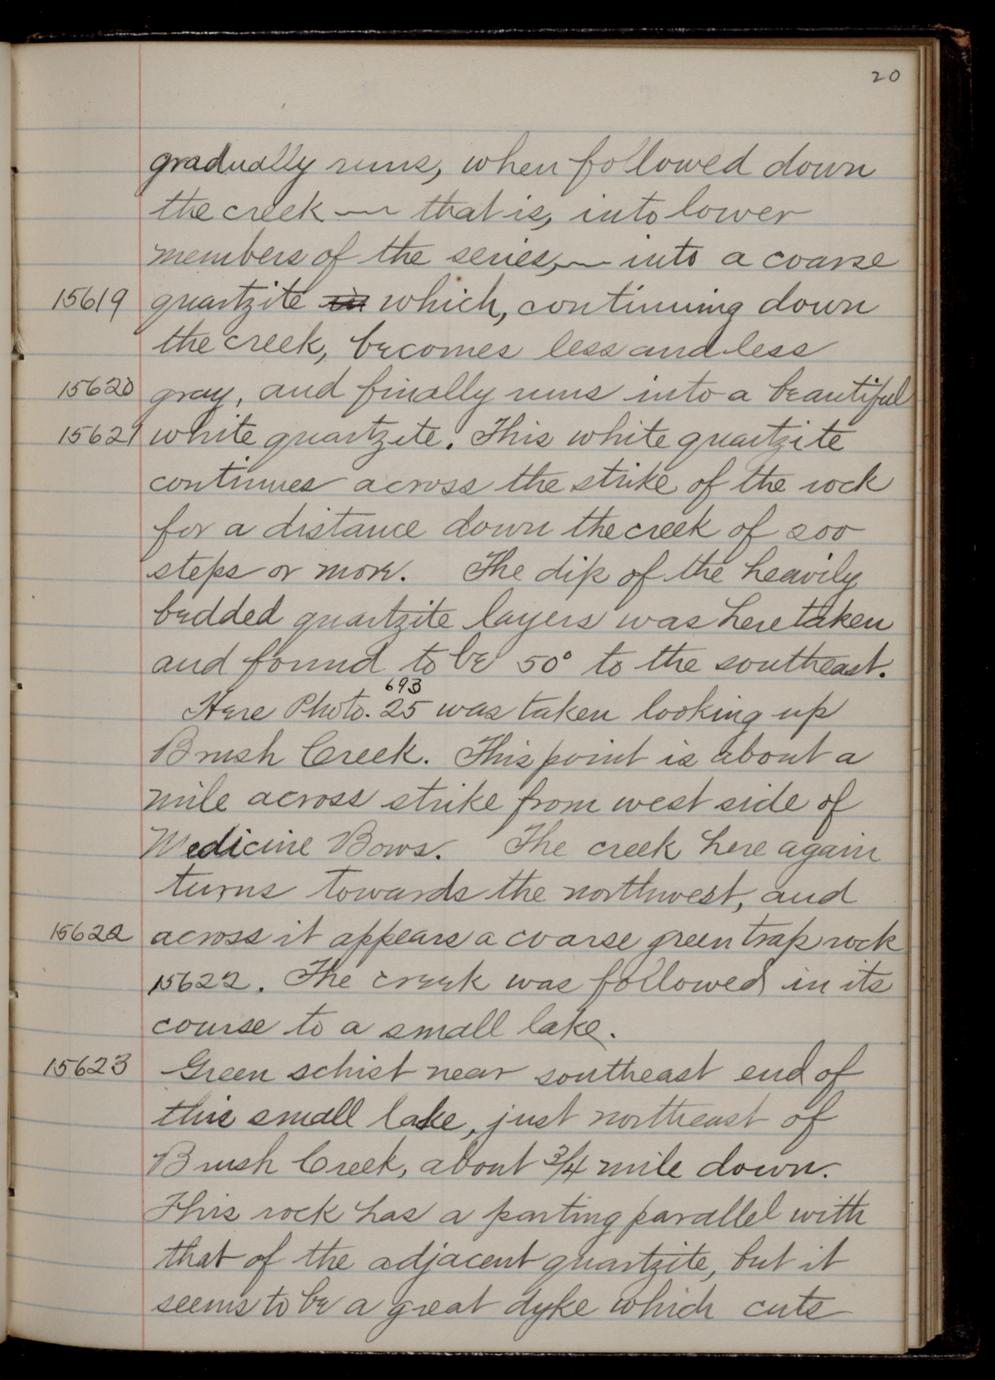 20
gradually runs, when followed down
the creek — that is, into lower
members of the series, — into a coarse
15619 quartzite in which, continuing down
the creek, becomes less and less
15620 gray, and finally runs into a beautiful
15621 white quartzite. This white quartzite
continues across the strike of the rock
for a distance down the creek of 200
steps or more. The dip of the heavily
bedded quartzite layers was here taken
and found to be 50° to the southeast.
693
Here Photo. 25 was taken looking up
Brush Creek. This point is about a
mile across strike from west side of
Medicine Bows. The creek here again
turns towards the northwest, and
15622 across it appears a coarse green trap rock
15622. The creek was followed in its
course to a small lake.
15623 Green schist near southeast end of
this small lake, just northeast of
Brush Creek, about 3/4 mile down.
This rock has a parting parallel with
that of the adjacent quartzite, but it
seems to be a great dyke which cuts